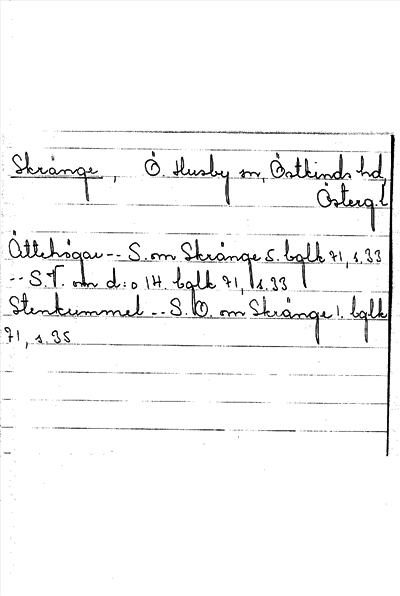 Skränge, Ö. Husby sn, Östkinds hd,
Österg.l
Ättehögar -- S. om Skränge 5. bglk 71, s. 33
-- S.V. om d:o 14. bglk 71, s. 33
Stenkummel -- S.O. om Skränge 1. bglk
71, s. 35